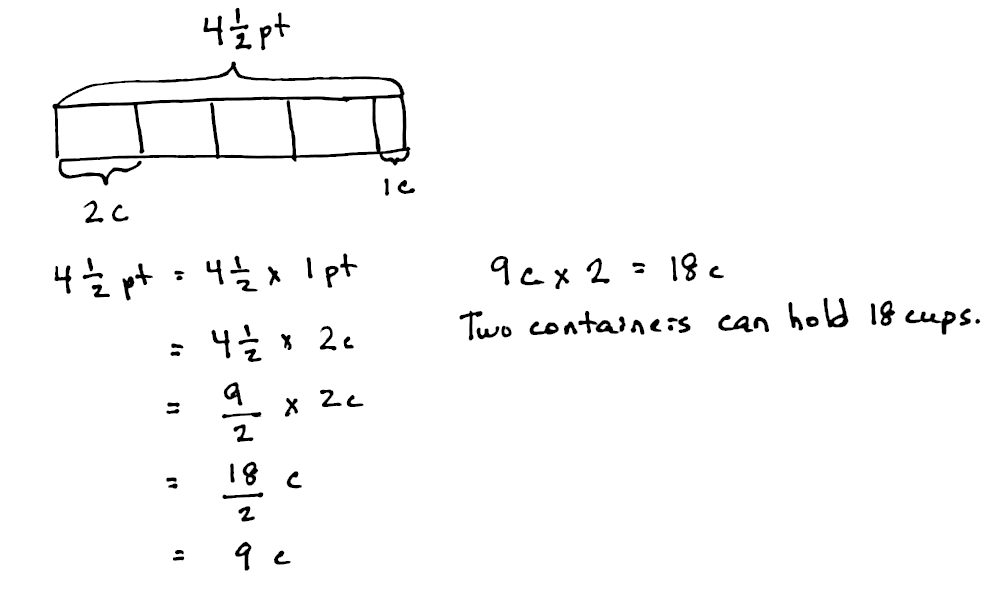 4 1/2 pt
2 c
1 c
4 1/2 pt = 4 1/2 x 1 pt
= 4 1/2 x 2c
= 9/2 x 2c
= 18/2 c
= 9 c
9c x 2 = 18 c
Two containers can hold 18 cups.